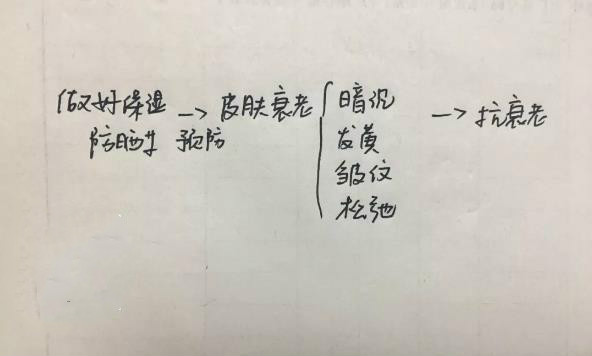 做好保湿 → 皮肤衰老 { 暗沉 → 抗衰老
防晒 预防
发黄
皱纹
松弛